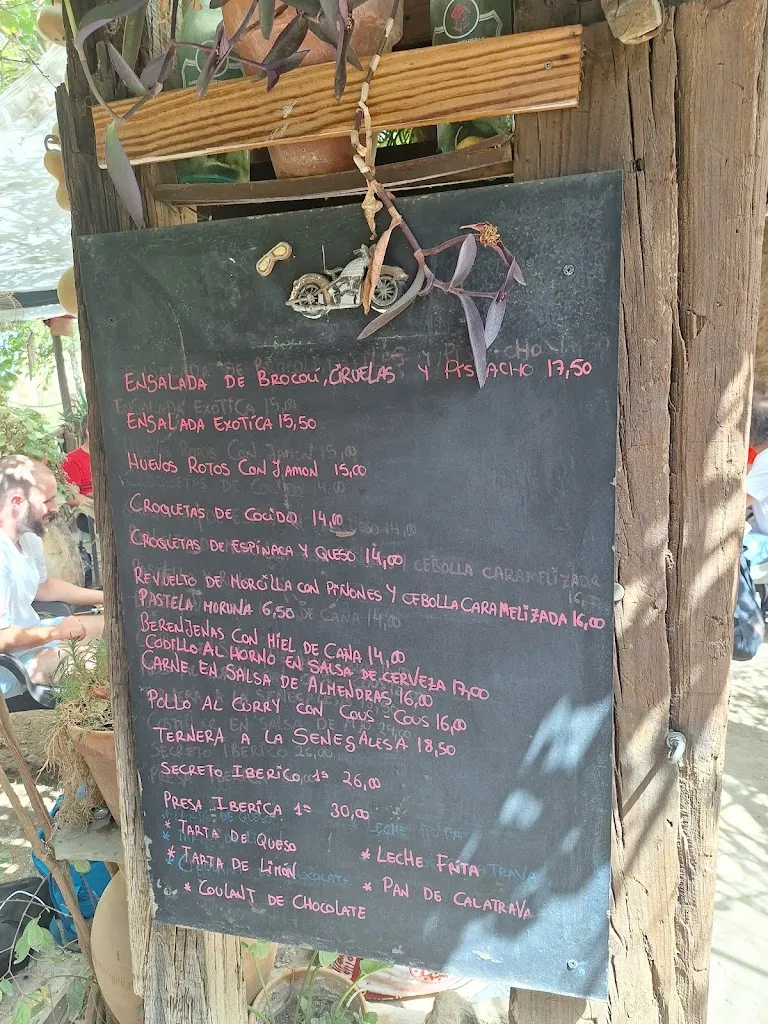 ENSALADA DE BROCOLI, CIRUELAS Y PISTACHO 17,50
ENSALADA EXOTICA 15,50
HUEVOS ROTOS CON JAMON 15,00
CROQUETAS DE COCIDO 14,00
CROQUETAS DE ESPINACA Y QUESO 14,00
REVUELTO DE MORCILLA CON PIÑONES Y CEBOLLA CARAMELIZADA 16,00
PASTELA MORUNA 6,50
BERENJENAS CON MIEL DE CAÑA 14,00
CODILLO AL HORNO EN SALSA DE CERVEZA 17,00
CARNE EN SALSA DE ALMENDRAS 16,00
POLLO AL CURRY CON COUS-COUS 16,00
TERNERA A LA SENEGALESA 18,50
SECRETO IBERICO 1ª 26,00
PRESA IBERICA 1ª 30,00
* TARTA DE QUESO
* TARTA DE LIMÓN
* COULANT DE CHOCOLATE
* LECHE FRITA
* PAN DE CALATRAVA